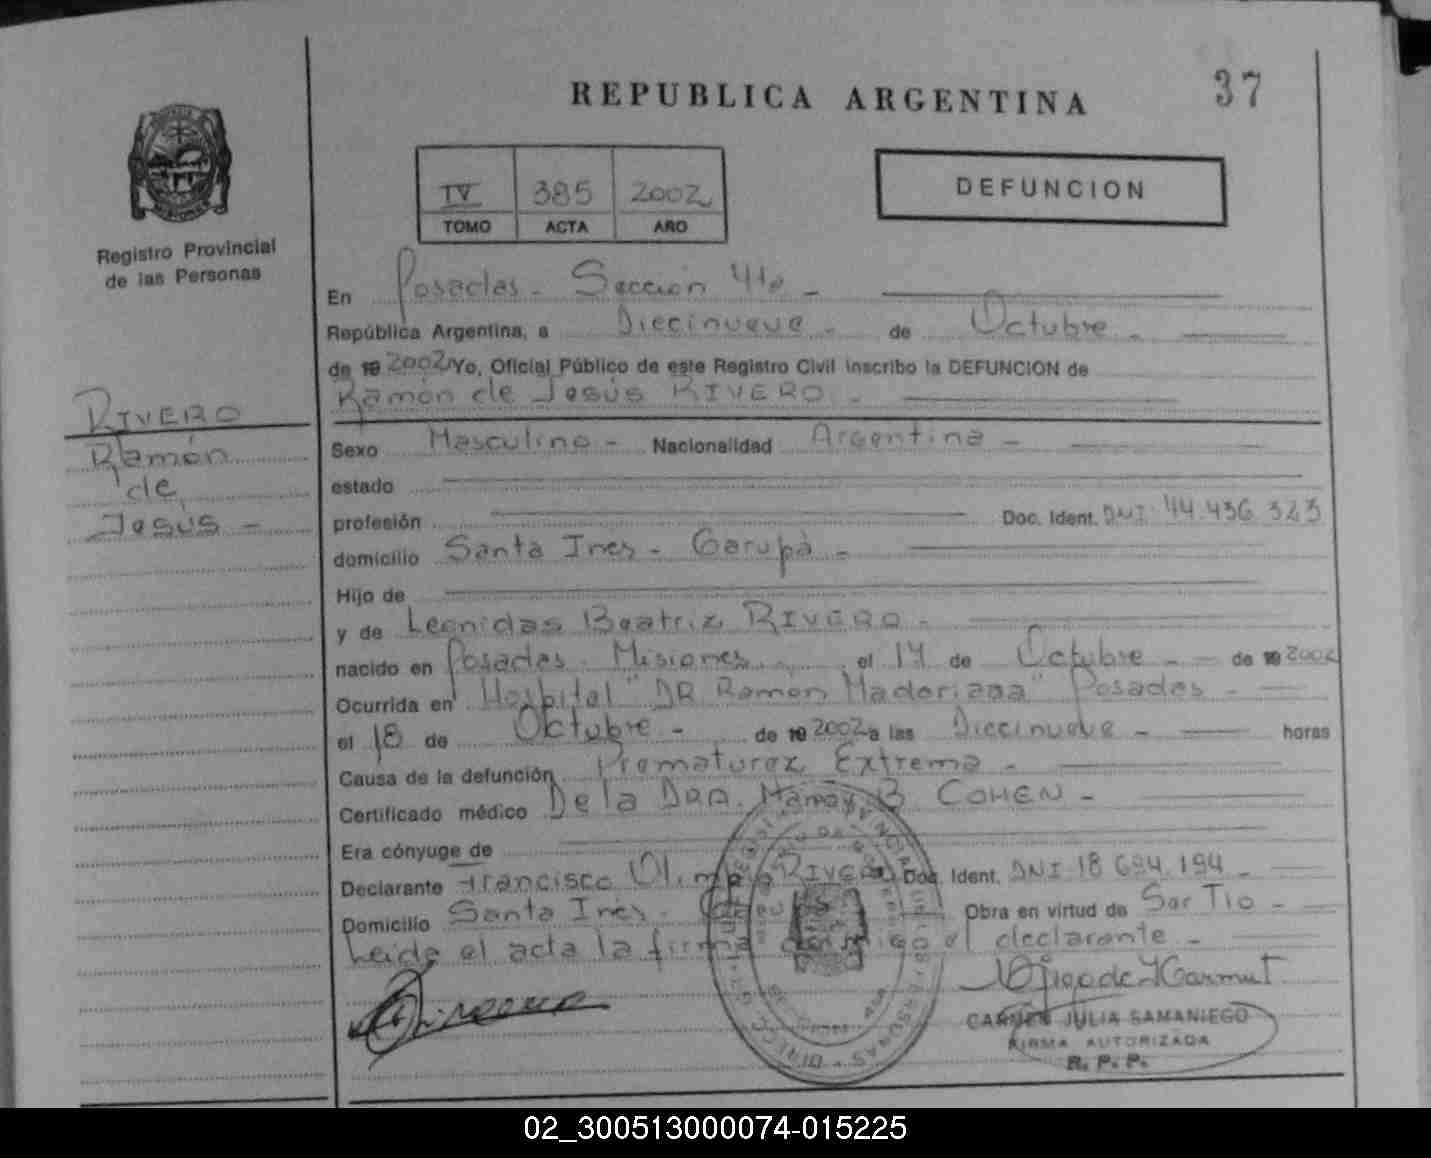 REPUBLICA ARGENTINA
37
IV 385 2002
TOMO ACTA AÑO
DEFUNCION
Registro Provincial
de las Personas
RIVERO
Ramón
de
Jesús -
En Posadas - Sección 41a -
República Argentina, a Diecinueve - de Octubre -
de 19 2002 Yo, Oficial Público de este Registro Civil inscribo la DEFUNCION de
Ramón de Jesús RIVERO -
Sexo Masculino - Nacionalidad Argentina -
estado
profesión Doc. Ident. DNI 44.436.323
domicilio Santa Ines - Garupá -
Hijo de
y de Leonidas Beatriz RIVERO -
nacido en Posadas - Misiones el 17 de Octubre - de 19 2002
Ocurrida en Hospital "DR Ramon Madariaga" Posadas -
el 18 de Octubre - de 19 2002 a las Diecinueve - horas
Causa de la defunción Prematurez Extrema -
Certificado médico De la DRA. B COHEN -
Era cónyuge de
Declarante Francisco RIVERO Doc. Ident. DNI 18.694.194 -
Domicilio Santa Inés - Obra en virtud de Ser Tio -
Leida el acta la firma el declarante -
CARMEN JULIA SAMANIEGO
FIRMA AUTORIZADA
R. P. P.
02_300513000074-015225